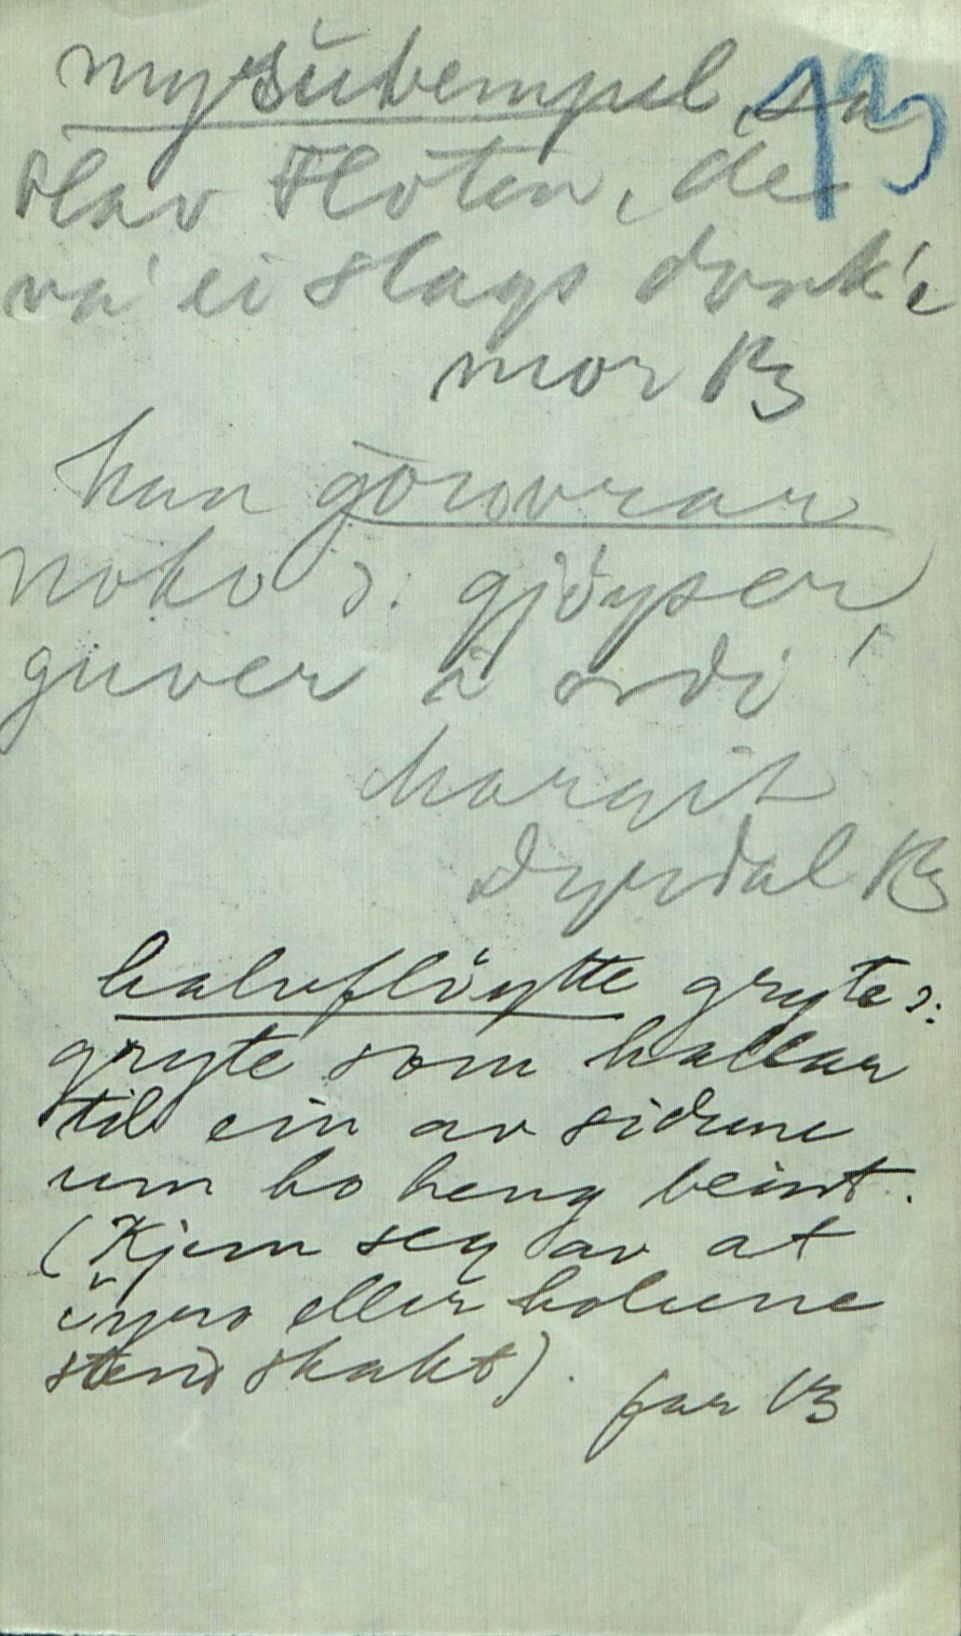 mysubempel, sa
Olav Floten, de
va' ei slags donk'e
mor B
han gorovrar
noko ɔ: gjøyser,
guver i ordi
Margit
Dyrdal B
halvfløytte gryte ɔ:
gryte som hallar
til ein av sidune
um ho heng beint.
(Kjem seg av at
øyro eller holune
stend skakt).
far B
13